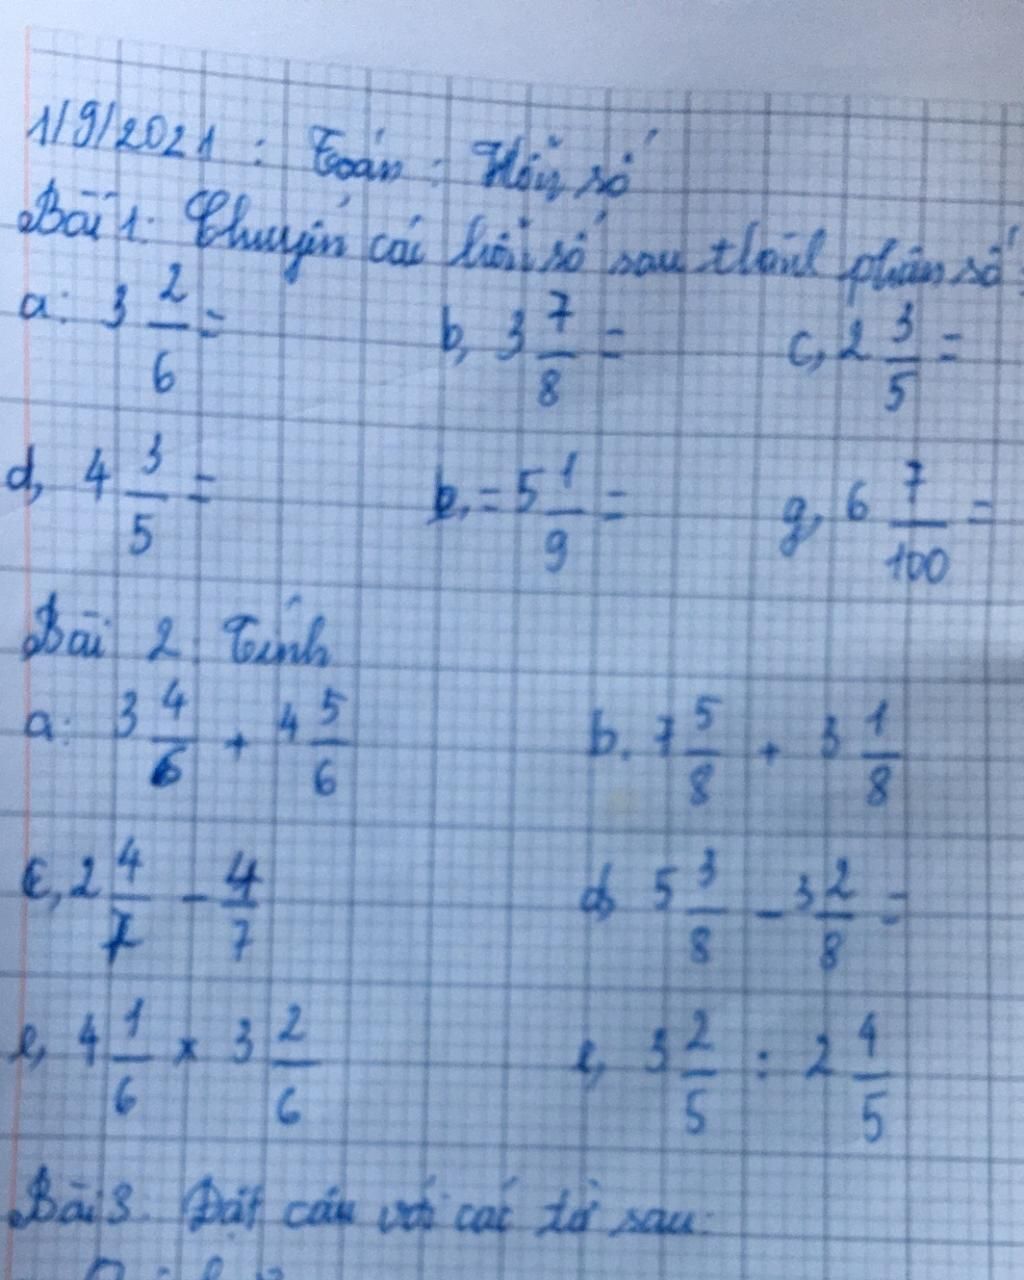 1/9/2021 : Toán : Hỗn số
Bài 1: Chuyển các hỗn số sau thành phân số:
a: 3 2/6 = b, 3 7/8 = c, 2 3/5 =
d, 4 3/5 = e, = 5 1/9 = g, 6 7/100 =
Bài 2: Tính
a: 3 4/6 + 4 5/6 b. 7 5/8 + 3 1/8
c, 2 4/7 - 4/7 d, 5 3/8 - 3 2/8 =
e, 4 1/6 x 3 2/6 e, 3 2/5 : 2 4/5
Bài 3. Đặt câu với các từ sau: